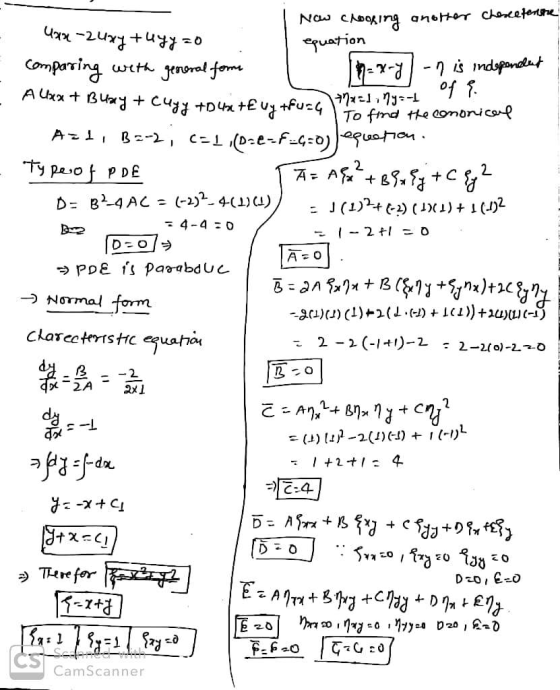 Uxx - 2Uxy + Uyy = 0
Comparing with general form
AUxx + BUxy + CUyy + DUx + EUy + FU = G
A = 1, B = -2, C = 1, (D=E=F=G=0)
Type of PDE
D = B²-4AC = (-2)²-4(1)(1)
= 4-4 = 0
D=0 ⇒
⇒ PDE is Parabolic
→ Normal form
Charecteristic equation
dy/dx = B/2A = -2/2x1
dy/dx = -1
⇒ ∫dy = ∫-dx
y = -x + C1
y+x = C1
⇒ Therefor
ξ = x+y
ξx = 1 ξy = 1 ξxy = 0
Now choosing another charecteristic
equation
η = x-y - η is independent
of ξ.
→ ηx=1, ηy=-1
To find the canonical
equation.
Ā = Aξx² + Bξxξy + Cξy²
= 1(1)² + (-2)(1)(1) + 1(1)²
= 1-2+1 = 0
Ā = 0
B̄ = 2Aξxηx + B(ξxηy + ξyηx) + 2Cξyηy
= 2(1)(1)(1) + 2(1.(-1) + 1(1)) + 2(1)(1)(-1)
= 2 - 2(-1+1) - 2 = 2-2(0)-2 = 0
B̄ = 0
C̄ = Aηx² + Bηxηy + Cηy²
= (1)(1)² - 2(1)(-1) + 1(-1)²
= 1+2+1 = 4
⇒ C̄ = 4
D̄ = Aξxx + Bξxy + Cξyy + Dξx + Eξy
D̄ = 0 ∵ ξxx=0, ξxy=0 ξyy=0
D=0, E=0
Ē = Aηxx + Bηxy + Cηyy + Dηx + Eηy
Ē = 0 ηxx=0, ηxy=0, ηyy=0 D=0, E=0
F̄=F=0 Ḡ=G=0
CS Scanned with
CamScanner